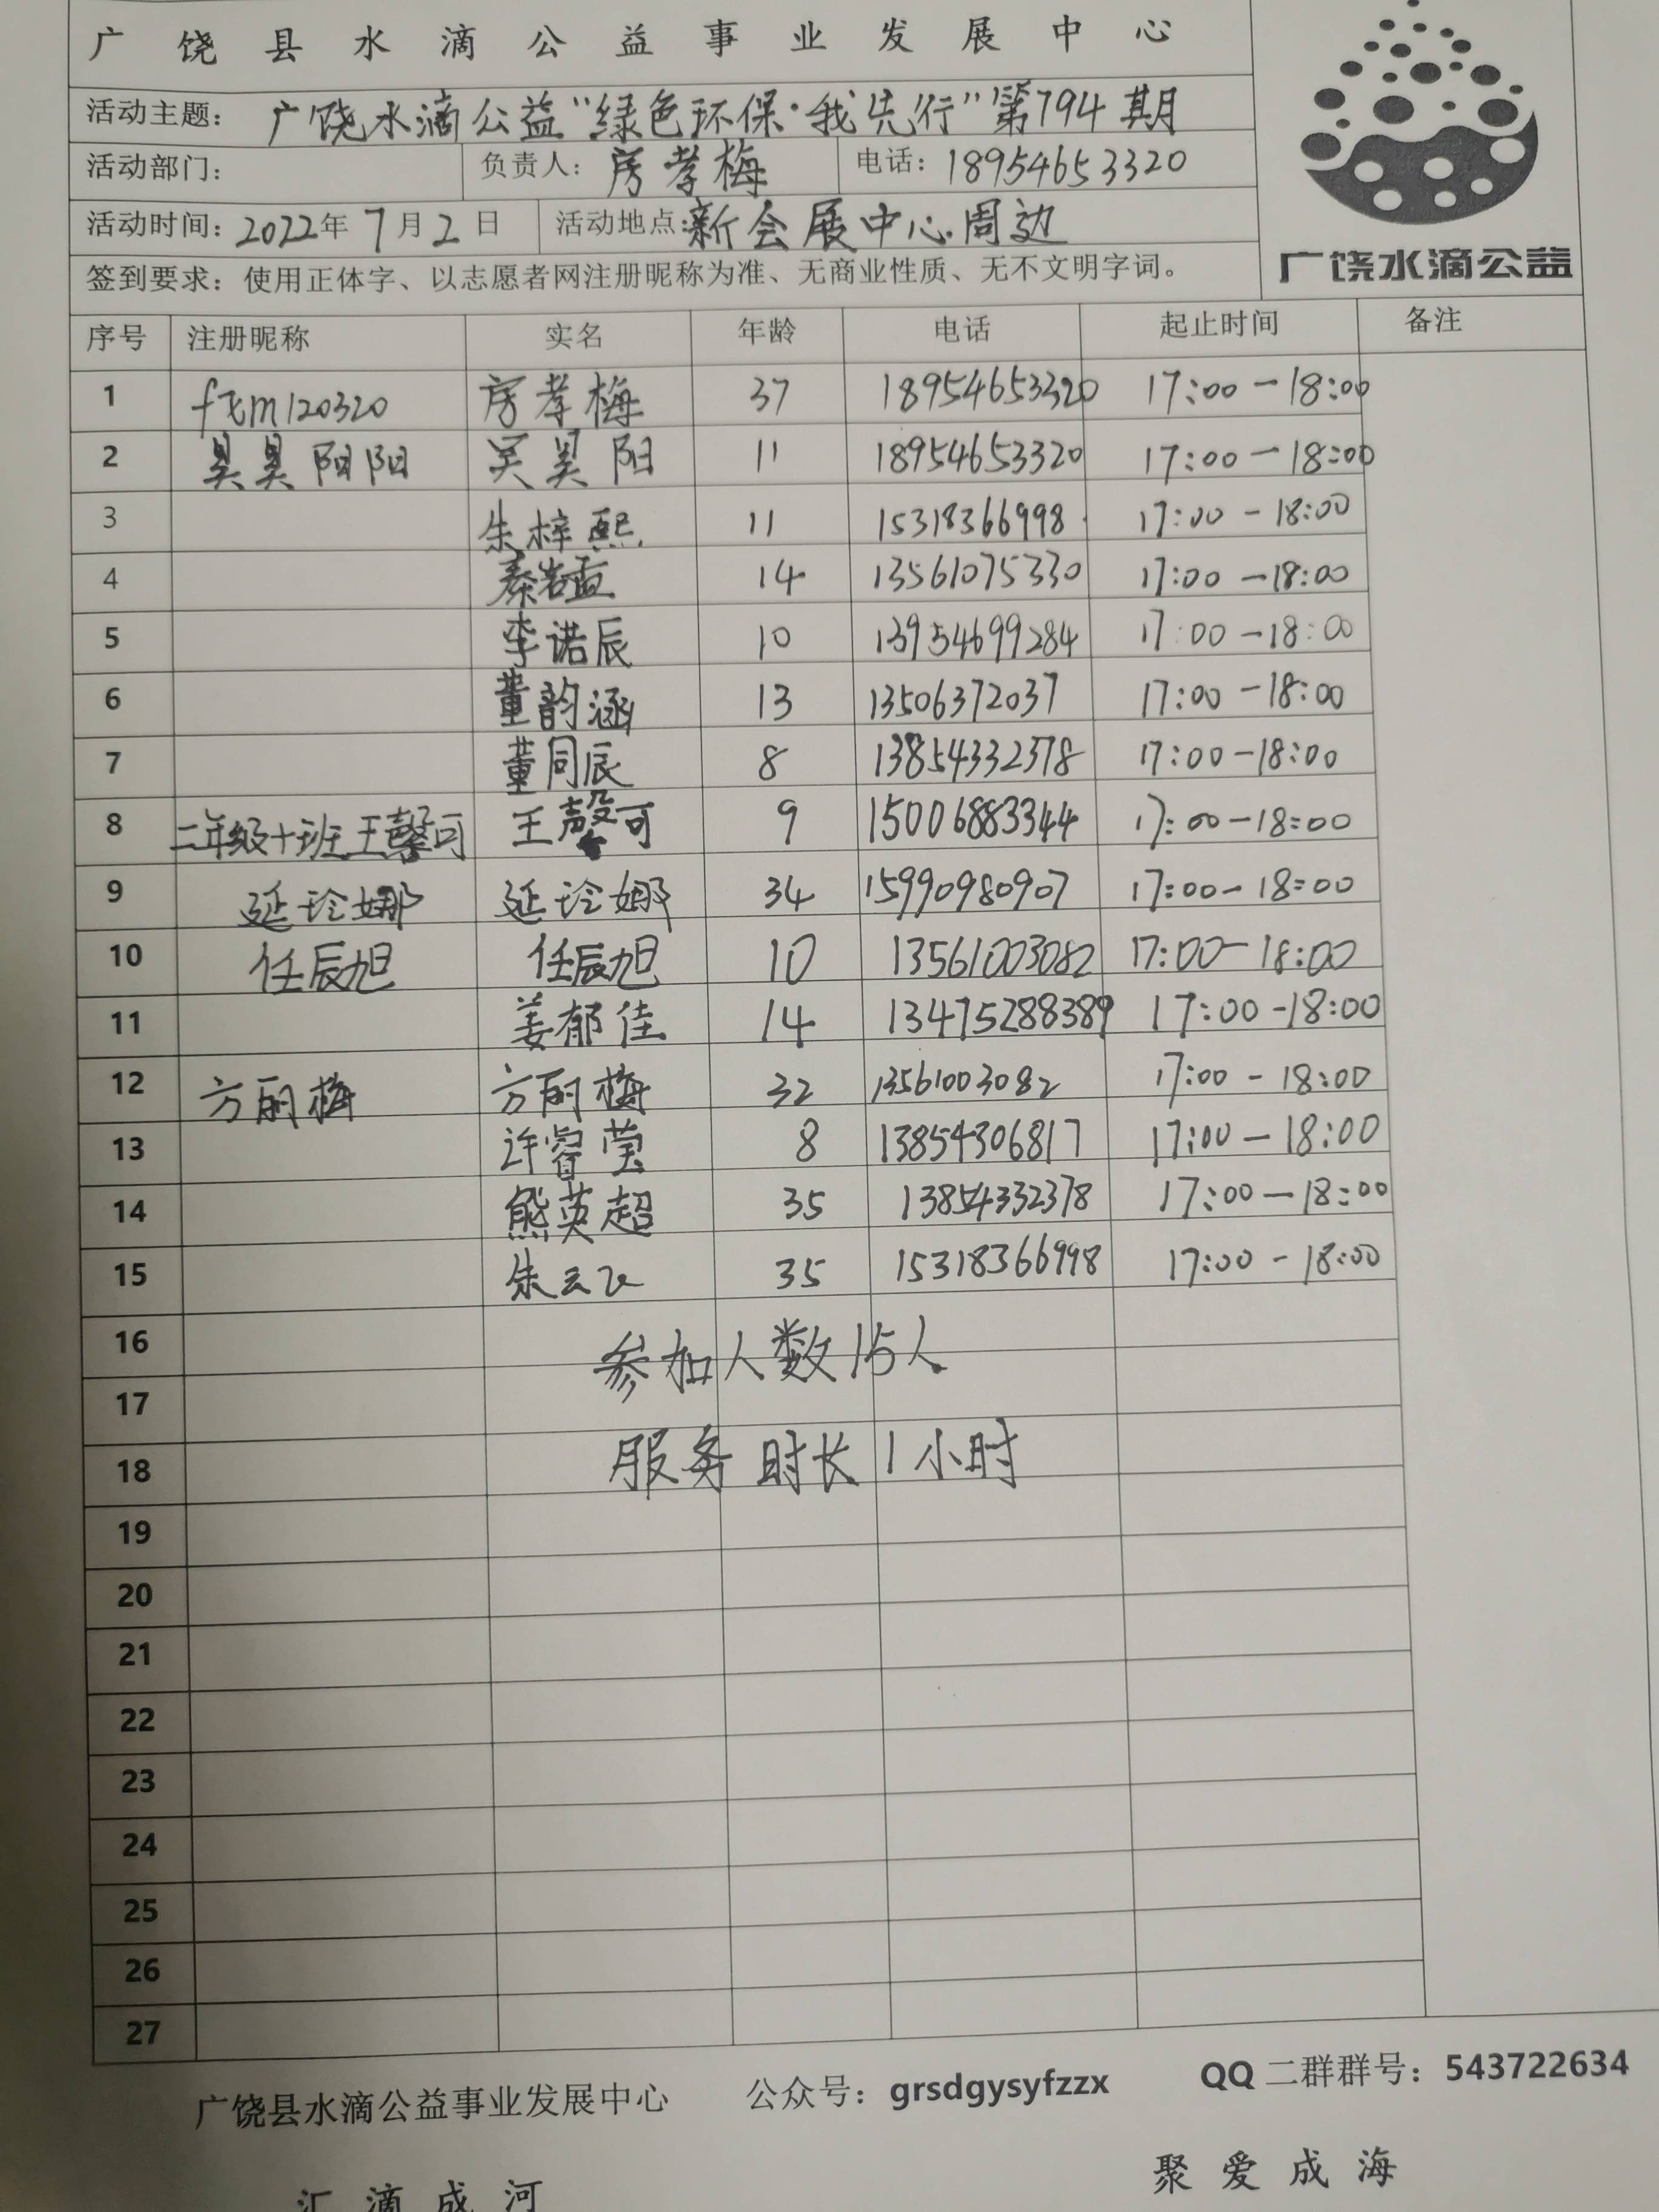 广饶县水滴公益事业发展中心
活动主题：广饶水滴公益“绿色环保·我先行”第794期
活动部门： 负责人：房孝梅 电话：18954653320
活动时间：2022年7月2日 活动地点：新会展中心周边
签到要求：使用正体字、以志愿者网注册昵称为准、无商业性质、无不文明字词。
广饶水滴公益
序号 注册昵称 实名 年龄 电话 起止时间 备注
1 fxm120320 房孝梅 37 18954653320 17:00-18:00
2 昊昊阳阳 吴昊阳 11 18954653320 17:00-18:00
3 朱梓熙 11 15318366998 17:00-18:00
4 秦 14 13561075330 17:00-18:00
5 李诺辰 10 13954699284 17:00-18:00
6 董韵涵 13 13506372037 17:00-18:00
7 董同辰 8 13854332378 17:00-18:00
8 二年级十班王馨可 王馨可 9 15006883344 17:00-18:00
9 延玲娜 延玲娜 34 15990980907 17:00-18:00
10 任辰旭 任辰旭 10 13561003082 17:00-18:00
11 姜郁佳 14 13475288389 17:00-18:00
12 方丽梅 方丽梅 32 13561003082 17:00-18:00
13 许睿莹 8 13854306817 17:00-18:00
14 熊英超 35 13854332378 17:00-18:00
15 朱云飞 35 15318366998 17:00-18:00
16 参加人数15人
17
18 服务时长1小时
19
20
21
22
23
24
25
26
27
广饶县水滴公益事业发展中心 公众号：grsdgysyfzzx QQ二群群号：543722634
汇滴成河 聚爱成海